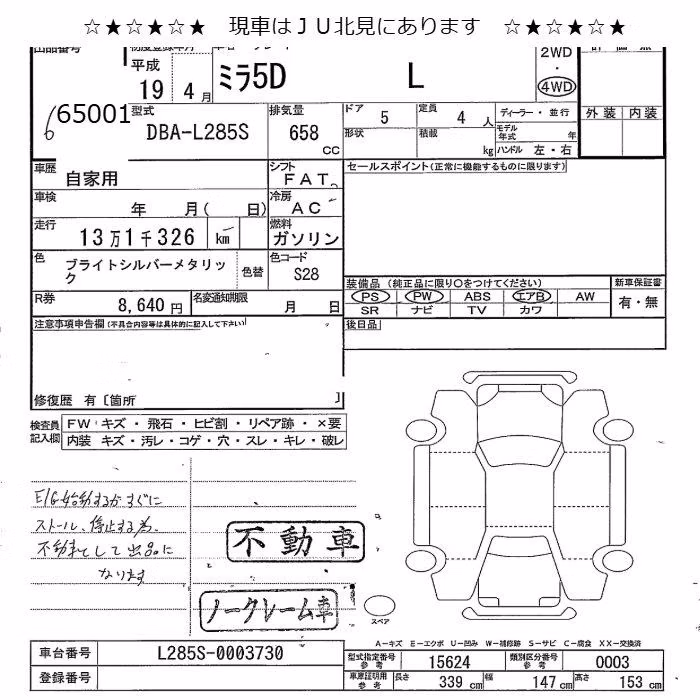 ☆★☆★☆★ 現車はＪＵ北見にあります ☆★☆★☆★
出品番号 初度登録年月
平成 19 4月 ミラ5D L 2WD・4WD
65001
型式 DBA-L285S
排気量 658 CC
ドア 5 定員 4人 ディーラー・並行
形状 積載 kg モデル年式 年
ハンドル 左・右
外装 内装
車歴 自家用
シフト FAT
セールスポイント(正常に機能するものに限ります)
車検 年 月( 日)
冷房 AC
走行 13万1千326 km
燃料 ガソリン
色 ブライトシルバーメタリック 色替
色コード S28
装備品 (純正品に限り○をつけてください) 新車保証書
PS PW ABS エアB AW 有・無
SR ナビ TV カワ
R券 8,640円 名変通知期限 月 日
注意事項申告欄(不具合内容等は具体的に記入して下さい)
後日品
修復歴 有〔箇所 〕
検査員記入欄 FW キズ・飛石・ヒビ割・リペア跡・×要
内装 キズ・汚レ・コゲ・穴・スレ・キレ・破レ
E/G始動するがすぐに
ストール、停止する為、
不動車として出品に
なります
不動車
ノークレーム車
スペア
A－キズ E－エクボ U－凹み W－補修跡 S－サビ C－腐食 XX－交換済
車台番号 L285S-0003730
登録番号
型式指定番号 参考 15624 類別区分番号 参考 0003
車庫証明用 参考 長さ 339 cm 幅 147 cm 高さ 153 cm